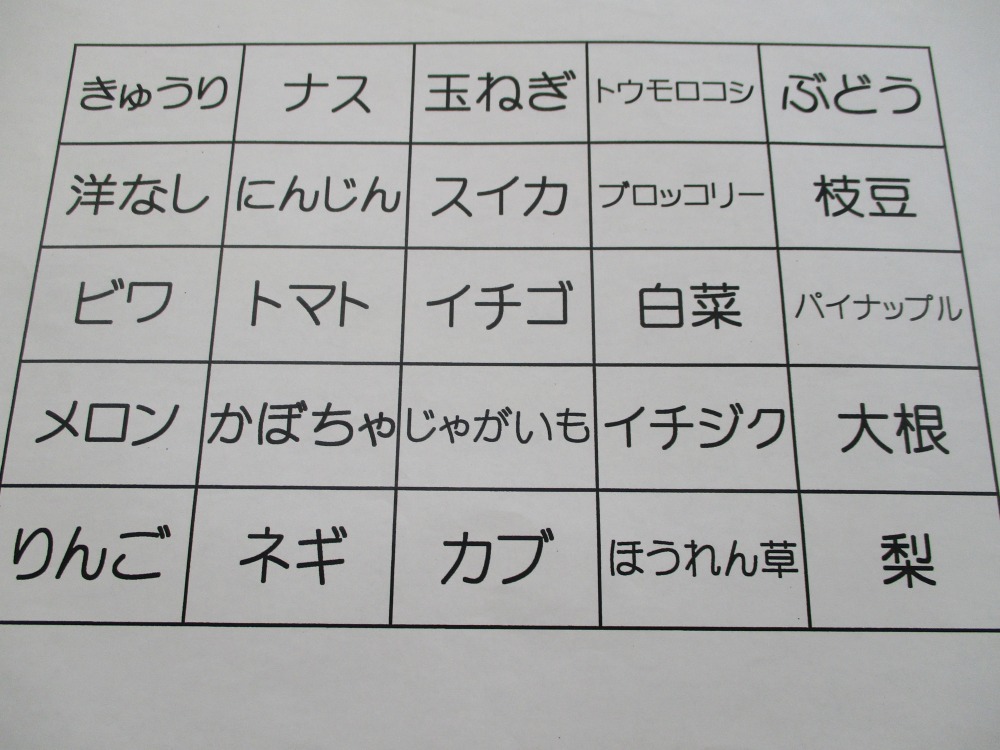 きゅうり ナス 玉ねぎ トウモロコシ ぶどう
洋なし にんじん スイカ ブロッコリー 枝豆
ビワ トマト イチゴ 白菜 パイナップル
メロン かぼちゃ じゃがいも イチジク 大根
りんご ネギ カブ ほうれん草 梨